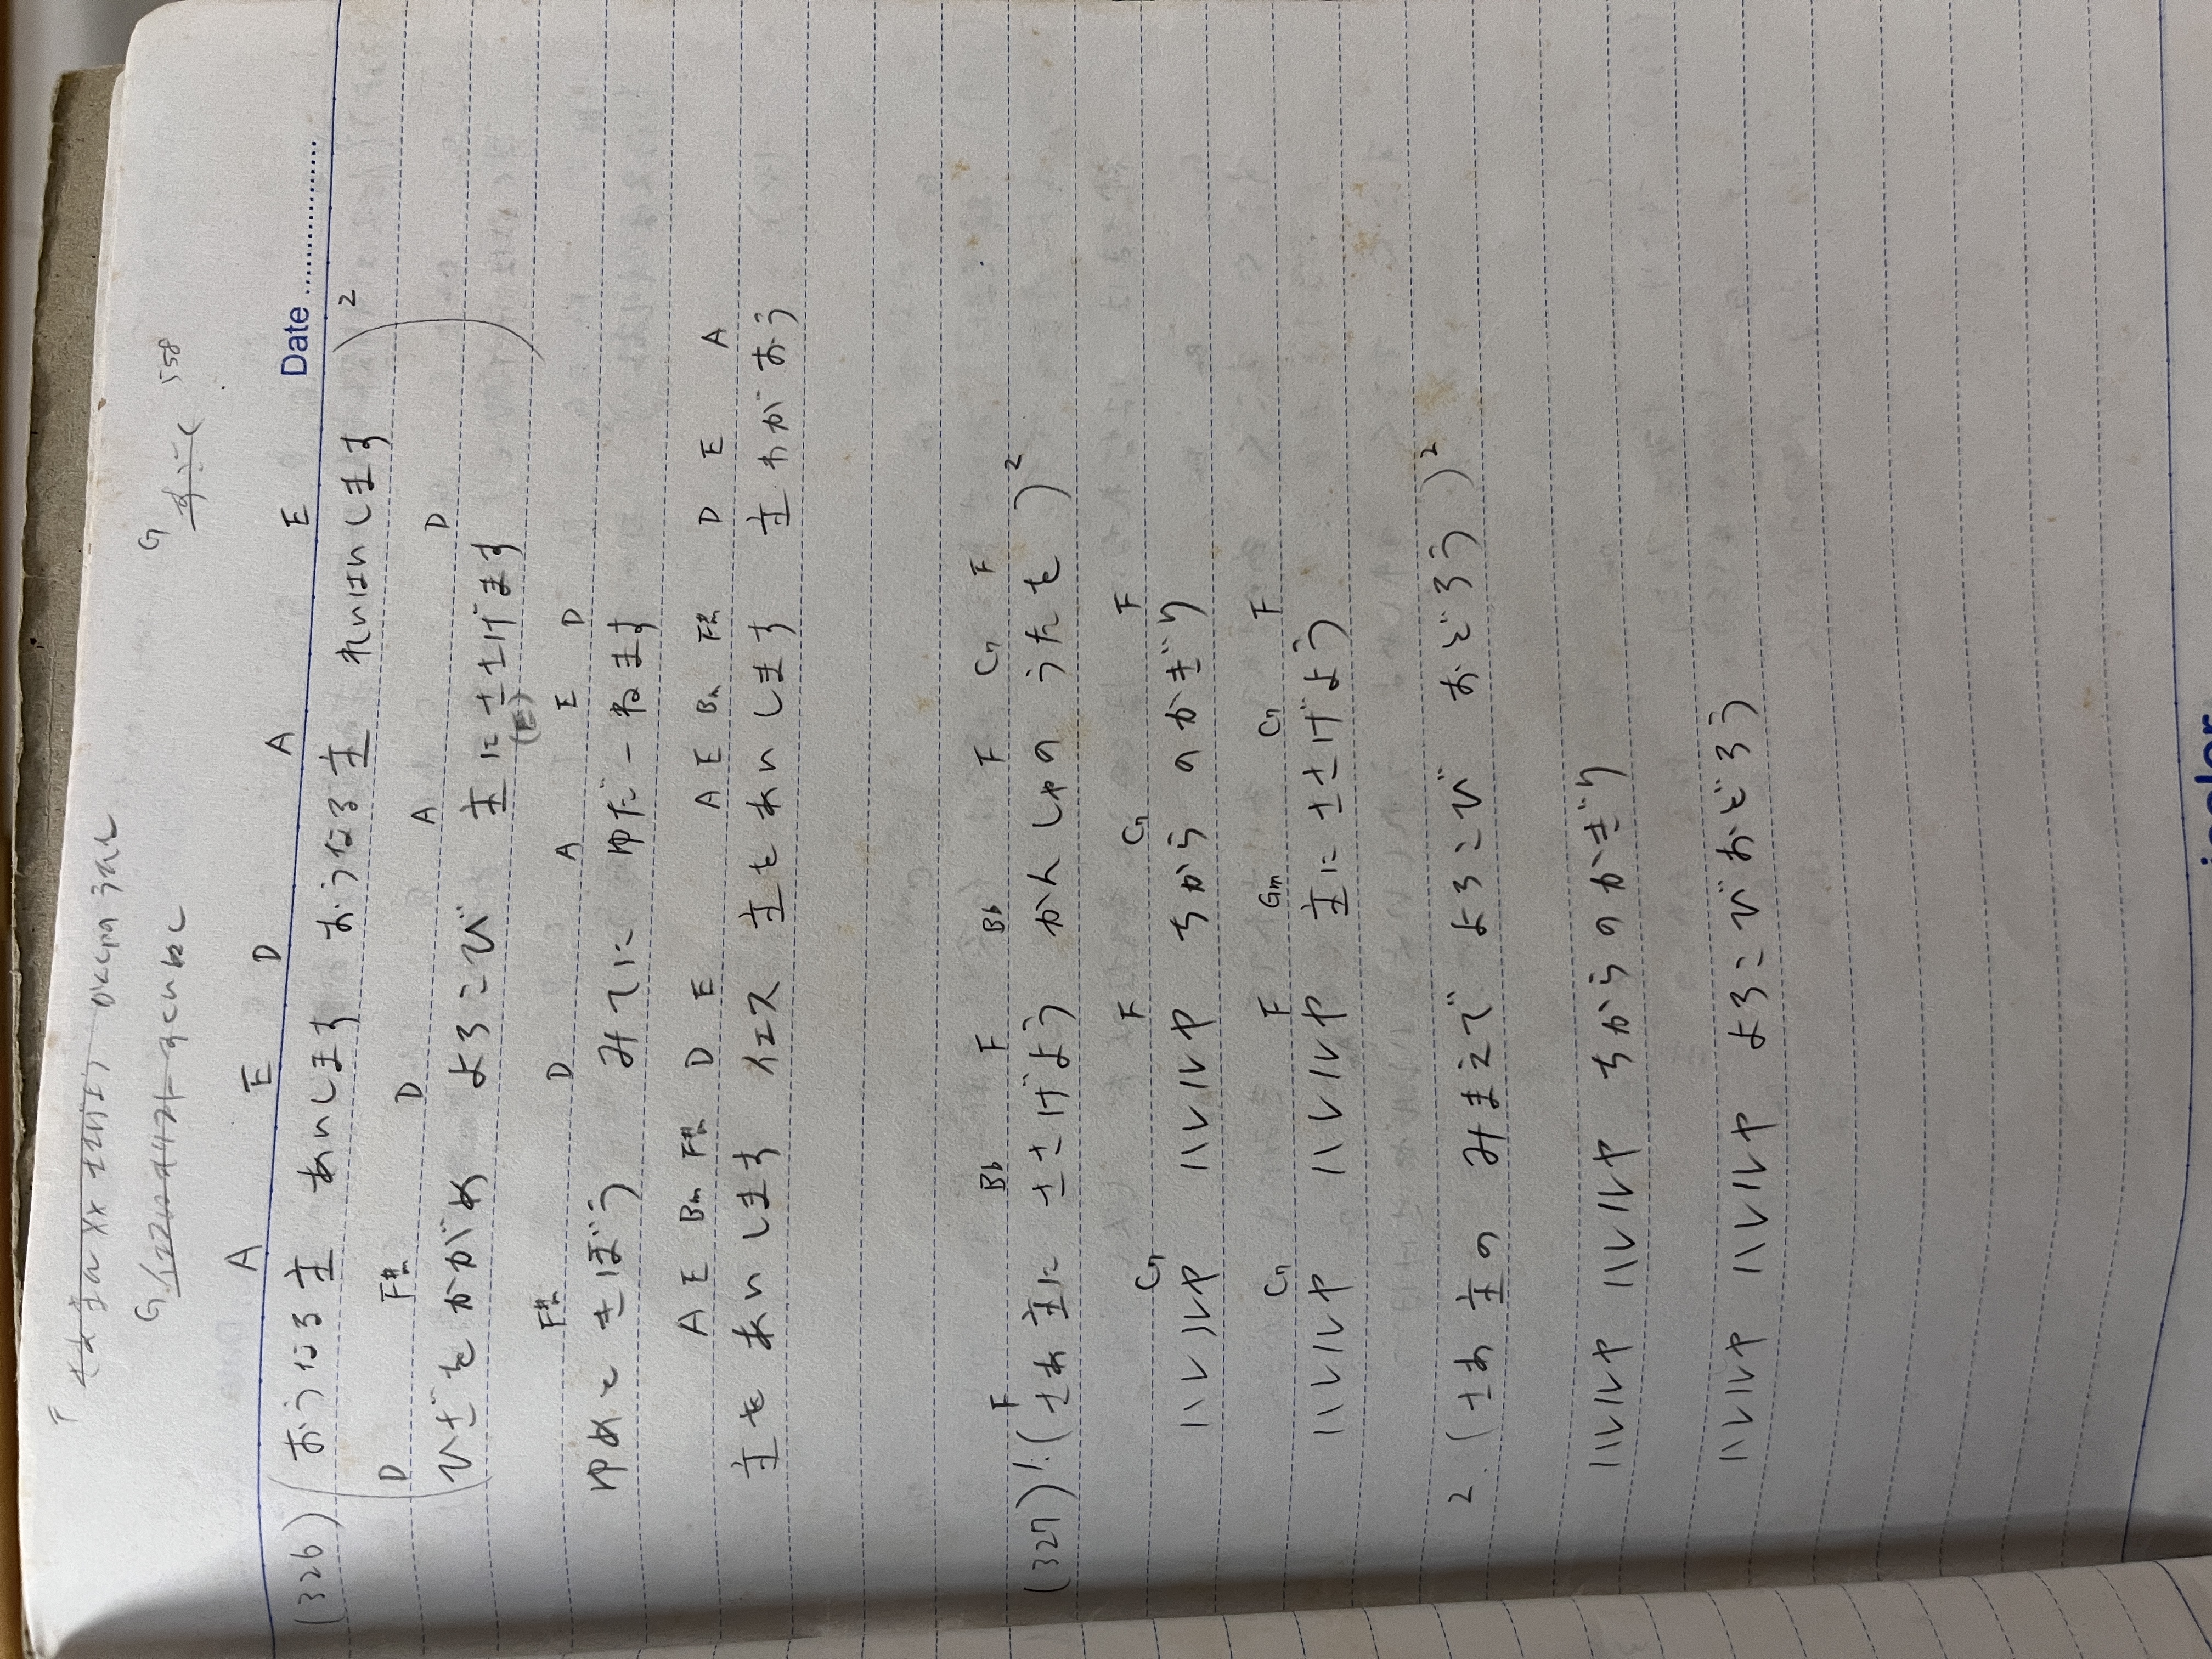 F
G
G 558
Date
A E D A E
(326) (おうなる主 あいします おうなる主 れいはいします )2
D F#m D A D
(ひざをかがめ よろこび 主にささげます
(E)
F#m D A E D
ゆめときぼう みてにゆだーねます
A E Bm F#m D E A E Bm F#m D E A
主をあいします イエス 主をあいします 主わがおう
F Bb F Bb F C7 F
(327) 1. (さあ主に ささげよう かんしゃの うたを )2
C7 F C7 F
ハレルヤ ハレルヤ ちから のかぎり
C7 F Gm C7 F
ハレルヤ ハレルヤ 主にささげよう
2. (さあ主の みまえで よろこび おどろう )2
ハレルヤ ハレルヤ ちからのかぎり
ハレルヤ ハレルヤ よろこびおどろう